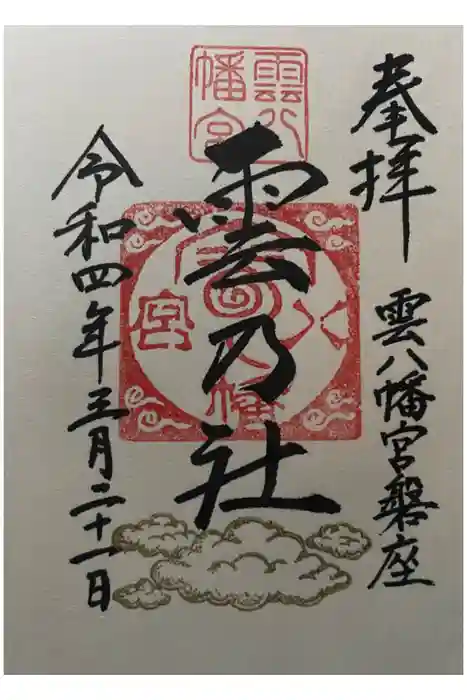 奉拝
雲八幡宮磐座
雲八
幡宮
雲乃社
雲八幡宮
令和四年三月二十一日